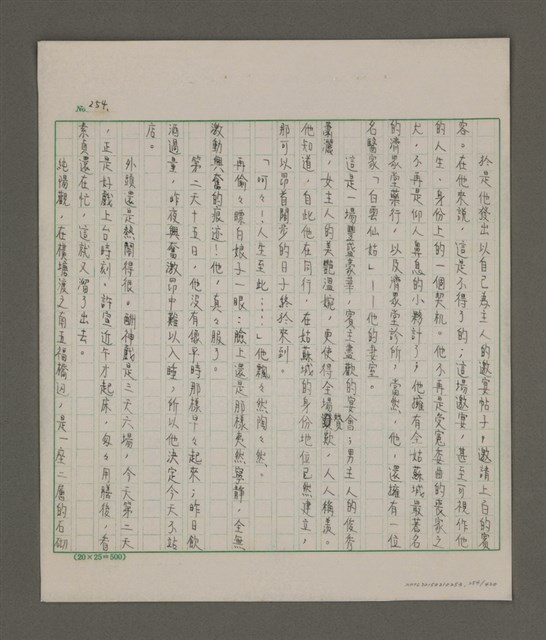 No. 254.
於是他發出以自己為主人的邀宴帖子，邀請上百的賓
客。在他來說，這是不得了的；這場邀宴，甚至可視作他
的人生、身份上的一個契机。他不再是受寃委曲的喪家之
犬，不再是仰人鼻息的小夥計了；他擁有全姑蘇城最著名
的濟眾堂藥行，以及濟眾堂診所，當然，他，還擁有一位
名醫家「白雲仙姑」——他的妻室。
這是一場豐盛豪華，賓主盡歡的宴會；男主人的俊秀
瀟灑，女主人的美艷溫婉，更使得全場贊歎，人人稱羨。
他知道，自此他在同行，在姑蘇城的身份地位已然建立，
那可以昂首闊步的日子終於來到。
「呵々！人生至此⋯⋯」他飄々然陶々然。
再偷々瞟白娘子一眼：臉上還是那樣爽然寧靜，全無
激動興奮的痕迹！他，真々服了。
第二天十五日，他沒有像平時那樣早々起來；昨日飲
酒過量，昨夜興奮激昂中難以入睡，所以他決定今天不站
店。
外頭還是熱鬧得很。酬神戲是三天六場，今天第二天
，正是好戲上台時刻。許宣近午才起床，匆々用膳後，看
素貞還在忙，這就又溜了出去。
純陽觀，在樓塘渡之南五福橋邊，是一座二層的石砌
(20×25=500)